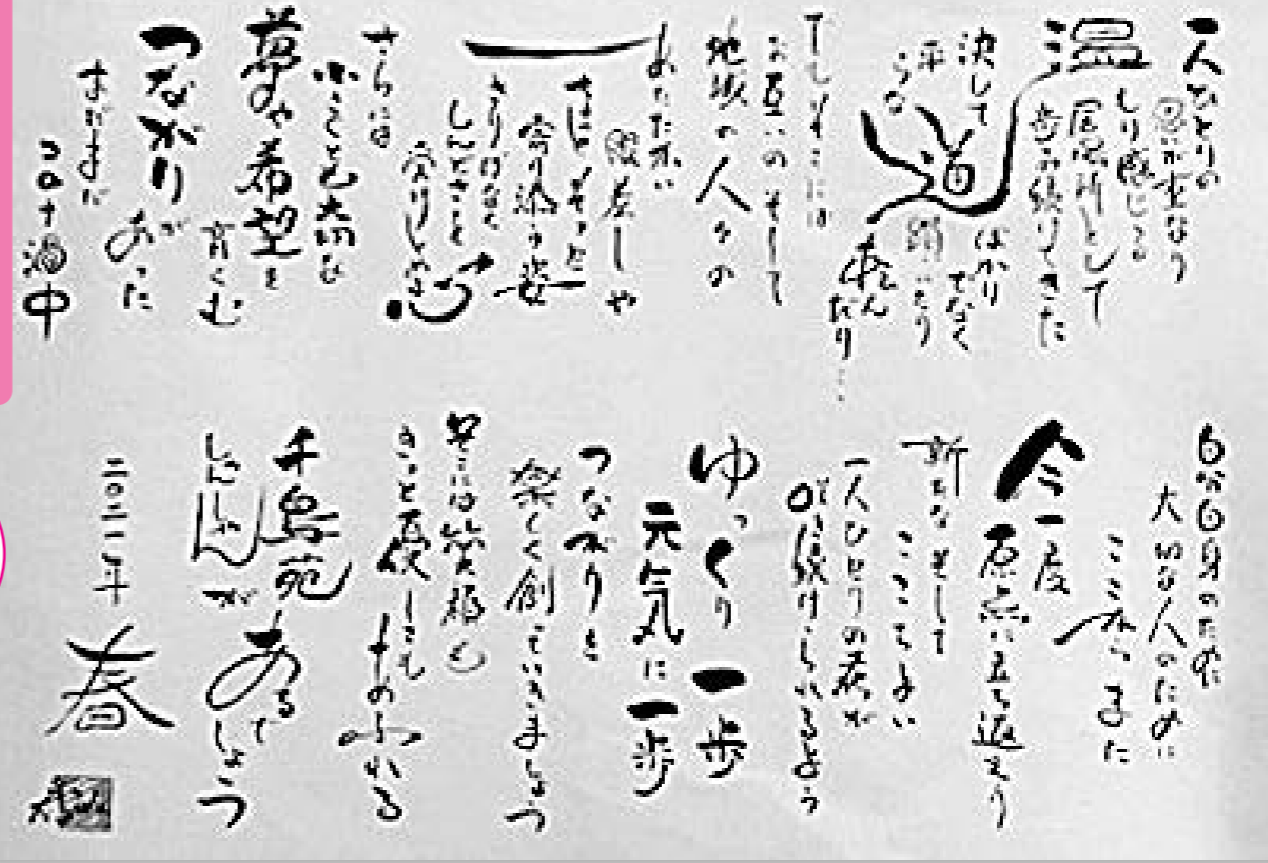 一人ひとりの
思いが重なり
感じる
温
居場所として
歩み続けてきた
決して
平らな
道
ばかり
でなく
でもそこには
お互いのそして
地域の人々の
あたたかい
眼差しや
そっと
寄り添う姿
さりげなく
しんどさを
さらには
小さくとも大切な
夢や希望を
育くむ
つながりが
あった
まだまだ
コロナ渦中
自分自身のために
大切な人のために
これからまた
今一度
原点に立ち返り
新たなそして
ここちよい
一人ひとりの花が
咲き続けられるよう
ゆっくり一歩
元気に一歩
つながりを
楽しく創っていきましょう
そこには笑顔も
きっと優しさも
千鳥苑
が
あるでしょう
二〇二一年
春